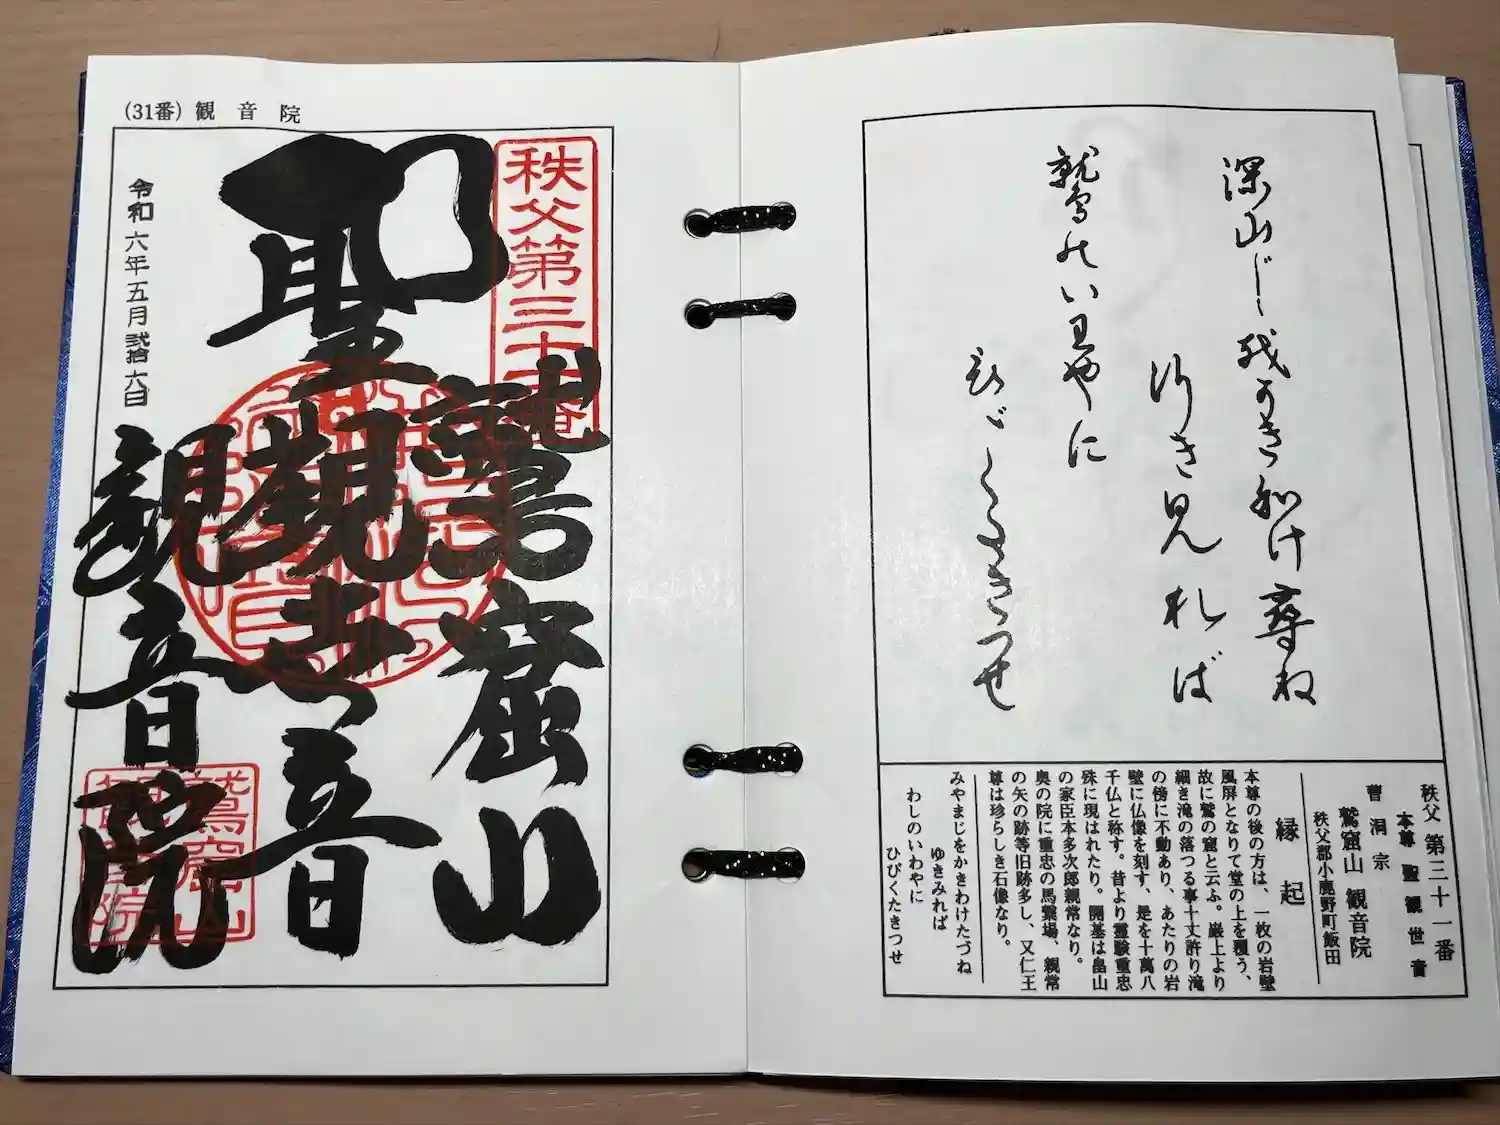 深山じ越かき和け尋ね
行き見れば
鷲のい王やに
ひゞくたきつせ
秩父 第三十一番
本尊 聖観世音
曹洞宗
鷲窟山 観音院
秩父郡小鹿野町飯田
縁起
本尊の後の方は、一枚の岩壁
風屏となりて堂の上を覆う、
故に鷲の窟と云ふ。巌上より
細き滝の落つる事十丈許り滝
の傍に不動あり、あたりの岩
壁に仏像を刻す、是を十萬八
千仏と称す。昔より霊験重忠
殊に現はれたり。開基は畠山
の家臣本多次郎親常なり。
奥の院に重忠の馬繋場、親常
の矢の跡等旧跡多し、又仁王
尊は珍らしき石像なり。
みやまじをかきわけたづね
ゆきみれば
わしのいわやに
ひびくたきつせ
(31番) 観音院
秩父第三十一番
鷲窟山
聖観世音
観音院
令和六年五月弐拾六日
鷲窟山
観音院